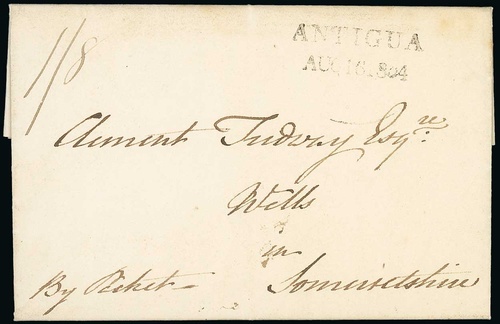 1/8
ANTIGUA
AUG 16 1804
Clement Tudway Esqre:
Wells
in
Somersetshire
By Packet